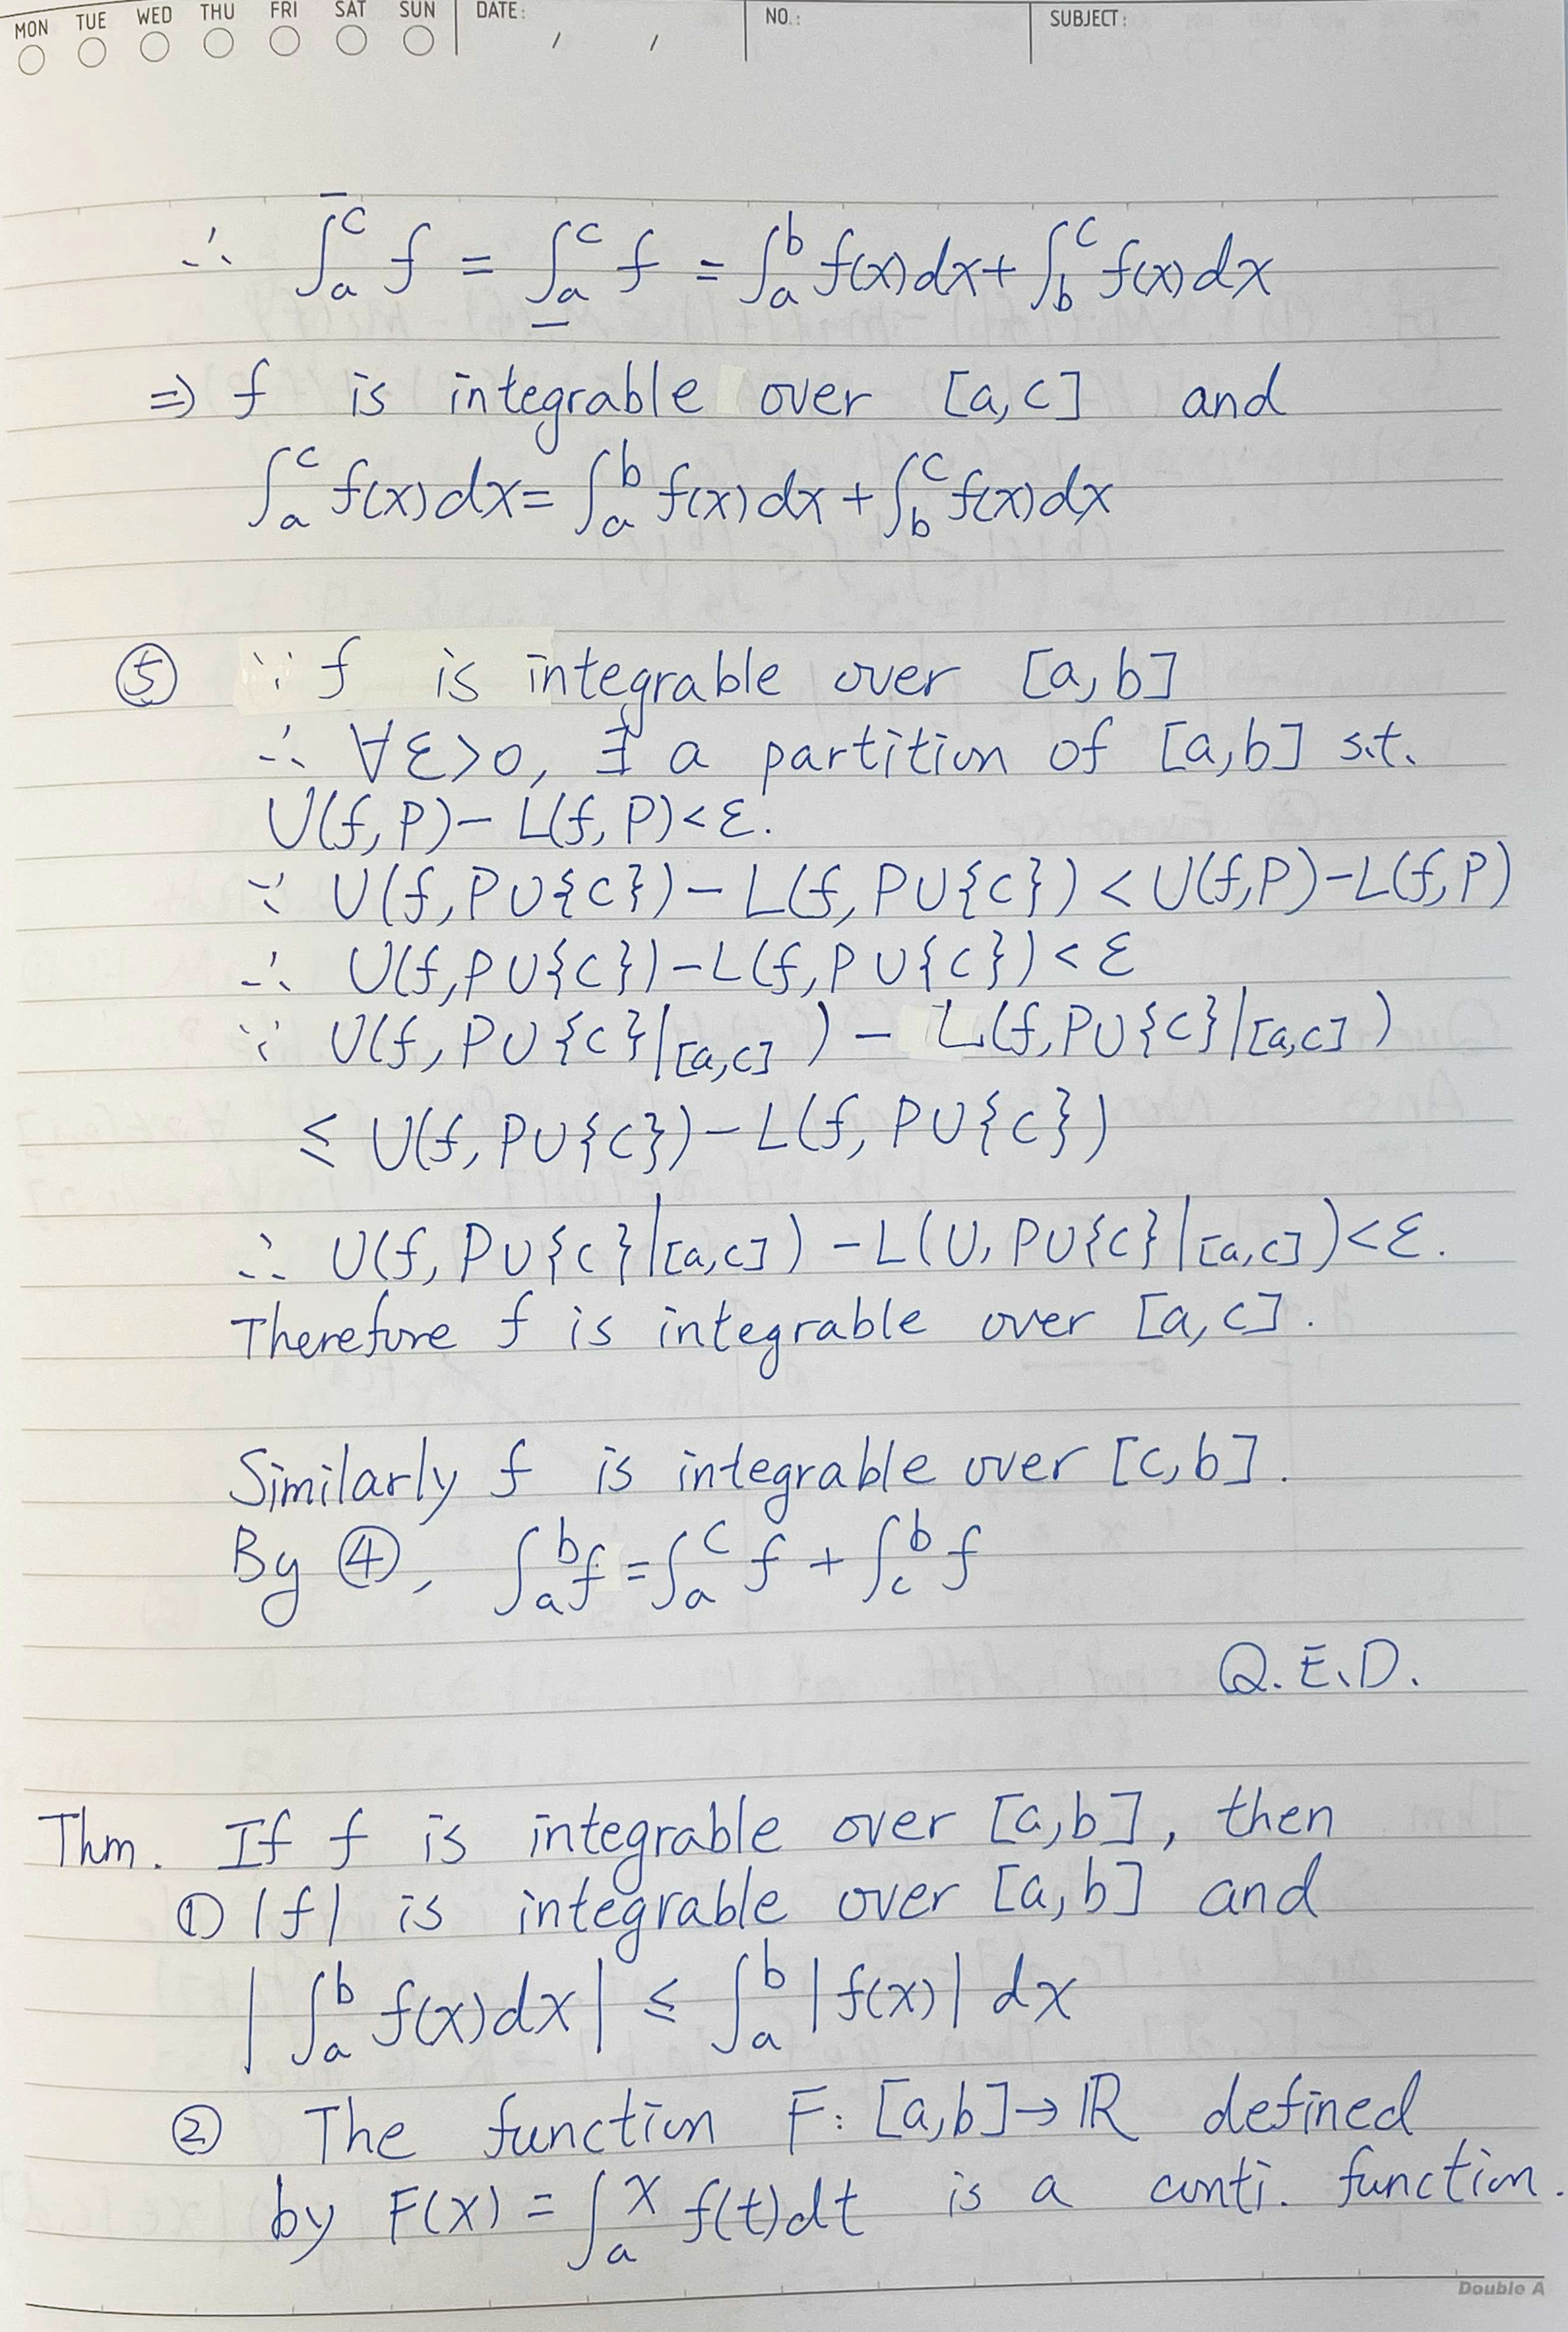 MON TUE WED THU FRI SAT SUN DATE: / / NO.: SUBJECT:
∴ ∫̄ₐᶜ f = ∫̲ₐᶜ f = ∫ₐᵇ f(x)dx + ∫_b^c f(x)dx
⇒ f is integrable over [a,c] and
∫ₐᶜ f(x)dx = ∫ₐᵇ f(x)dx + ∫_b^c f(x)dx
⑤ ∵ f is integrable over [a,b]
∴ ∀ε>0, ∃ a partition of [a,b] s.t.
U(f,P) - L(f,P) < ε.
∵ U(f,P∪{c}) - L(f,P∪{c}) < U(f,P) - L(f,P)
∴ U(f,P∪{c}) - L(f,P∪{c}) < ε
∵ U(f,P∪{c}|[a,c]) - L(f,P∪{c}|[a,c])
≤ U(f,P∪{c}) - L(f,P∪{c})
∴ U(f,P∪{c}|[a,c]) - L(U,P∪{c}|[a,c]) < ε.
Therefore f is integrable over [a,c].
Similarly f is integrable over [c,b].
By ④, ∫ₐᵇ f = ∫ₐᶜ f + ∫_c^b f
Q.E.D.
Thm. If f is integrable over [a,b], then
① |f| is integrable over [a,b] and
|∫ₐᵇ f(x)dx| ≤ ∫ₐᵇ |f(x)| dx
② The function F: [a,b]→ℝ defined
by F(x) = ∫ₐˣ f(t)dt is a conti. function.
Double A